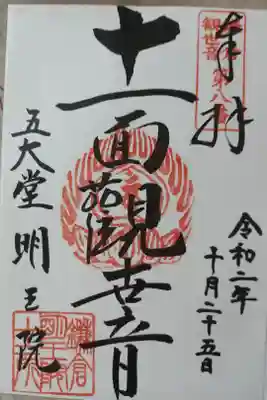 奉拝
観世音
第八番
十一面観世音
令和二年
十月二十五日
五大堂 明王院
鎌倉